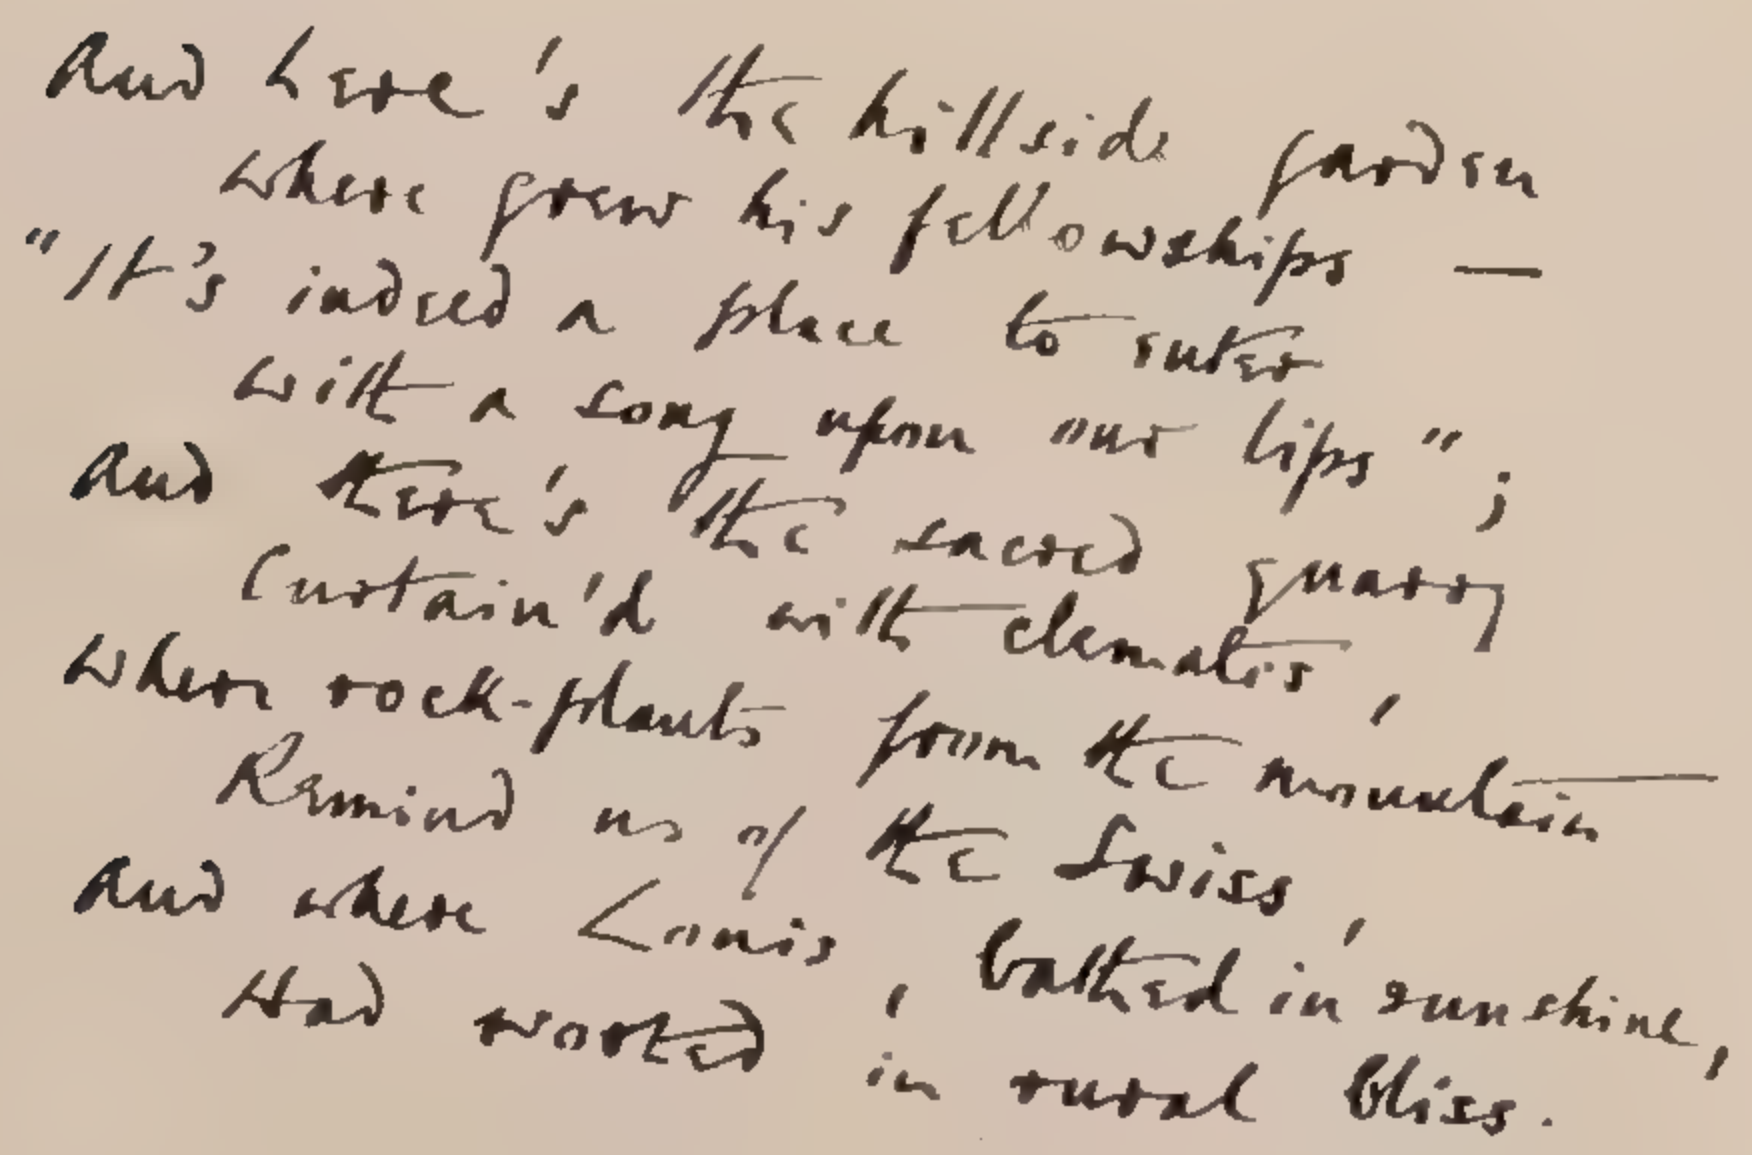 And here's the hillside garden
where grew his fellowships —
"It's indeed a place to enter
with a song upon our lips";
And there's the sacred quarry
Curtain'd with clematis,
where rock-plants from the mountain
Remind us of the Swiss,
And where Louis, bathed in sunshine,
Had worked in rural bliss.